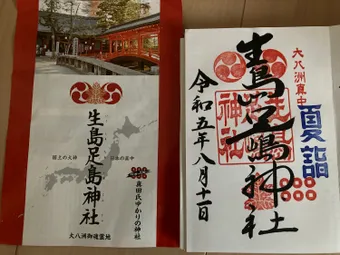 生島足島神社
国土の大神
日本の真中
真田氏ゆかりの神社
大八洲御霊地
大八洲真中
夏詣
生島足島神社
令和五年八月十一日